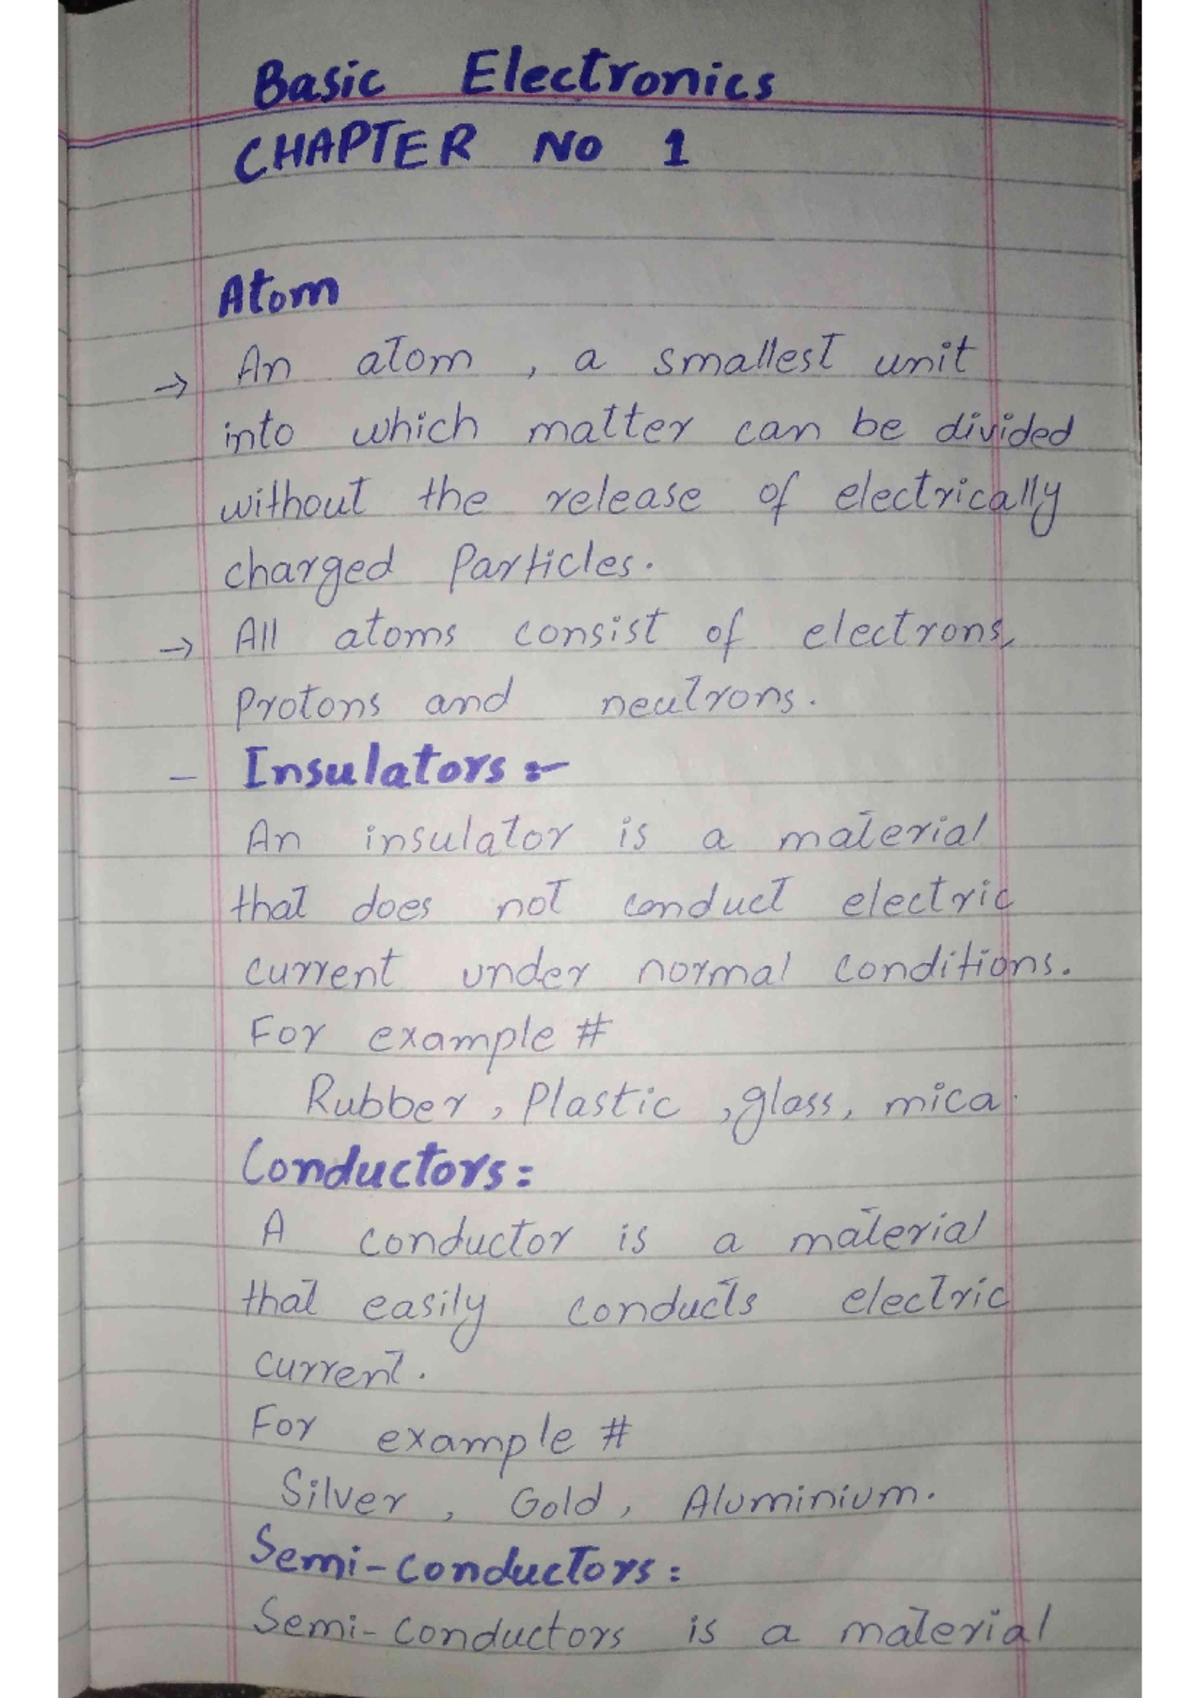 Basic Electronics
CHAPTER No 1
Atom
→ An atom , a smallest unit
into which matter can be divided
without the release of electrically
charged Particles.
→ All atoms consist of electrons,
Protons and neutrons.
– Insulators :-
An insulator is a material
that does not conduct electric
current under normal conditions.
For example #
Rubber , Plastic , glass, mica.
Conductors:
A conductor is a material
that easily conducts electric
current.
For example #
Silver , Gold , Aluminium.
Semi-conductors:
Semi-conductors is a material